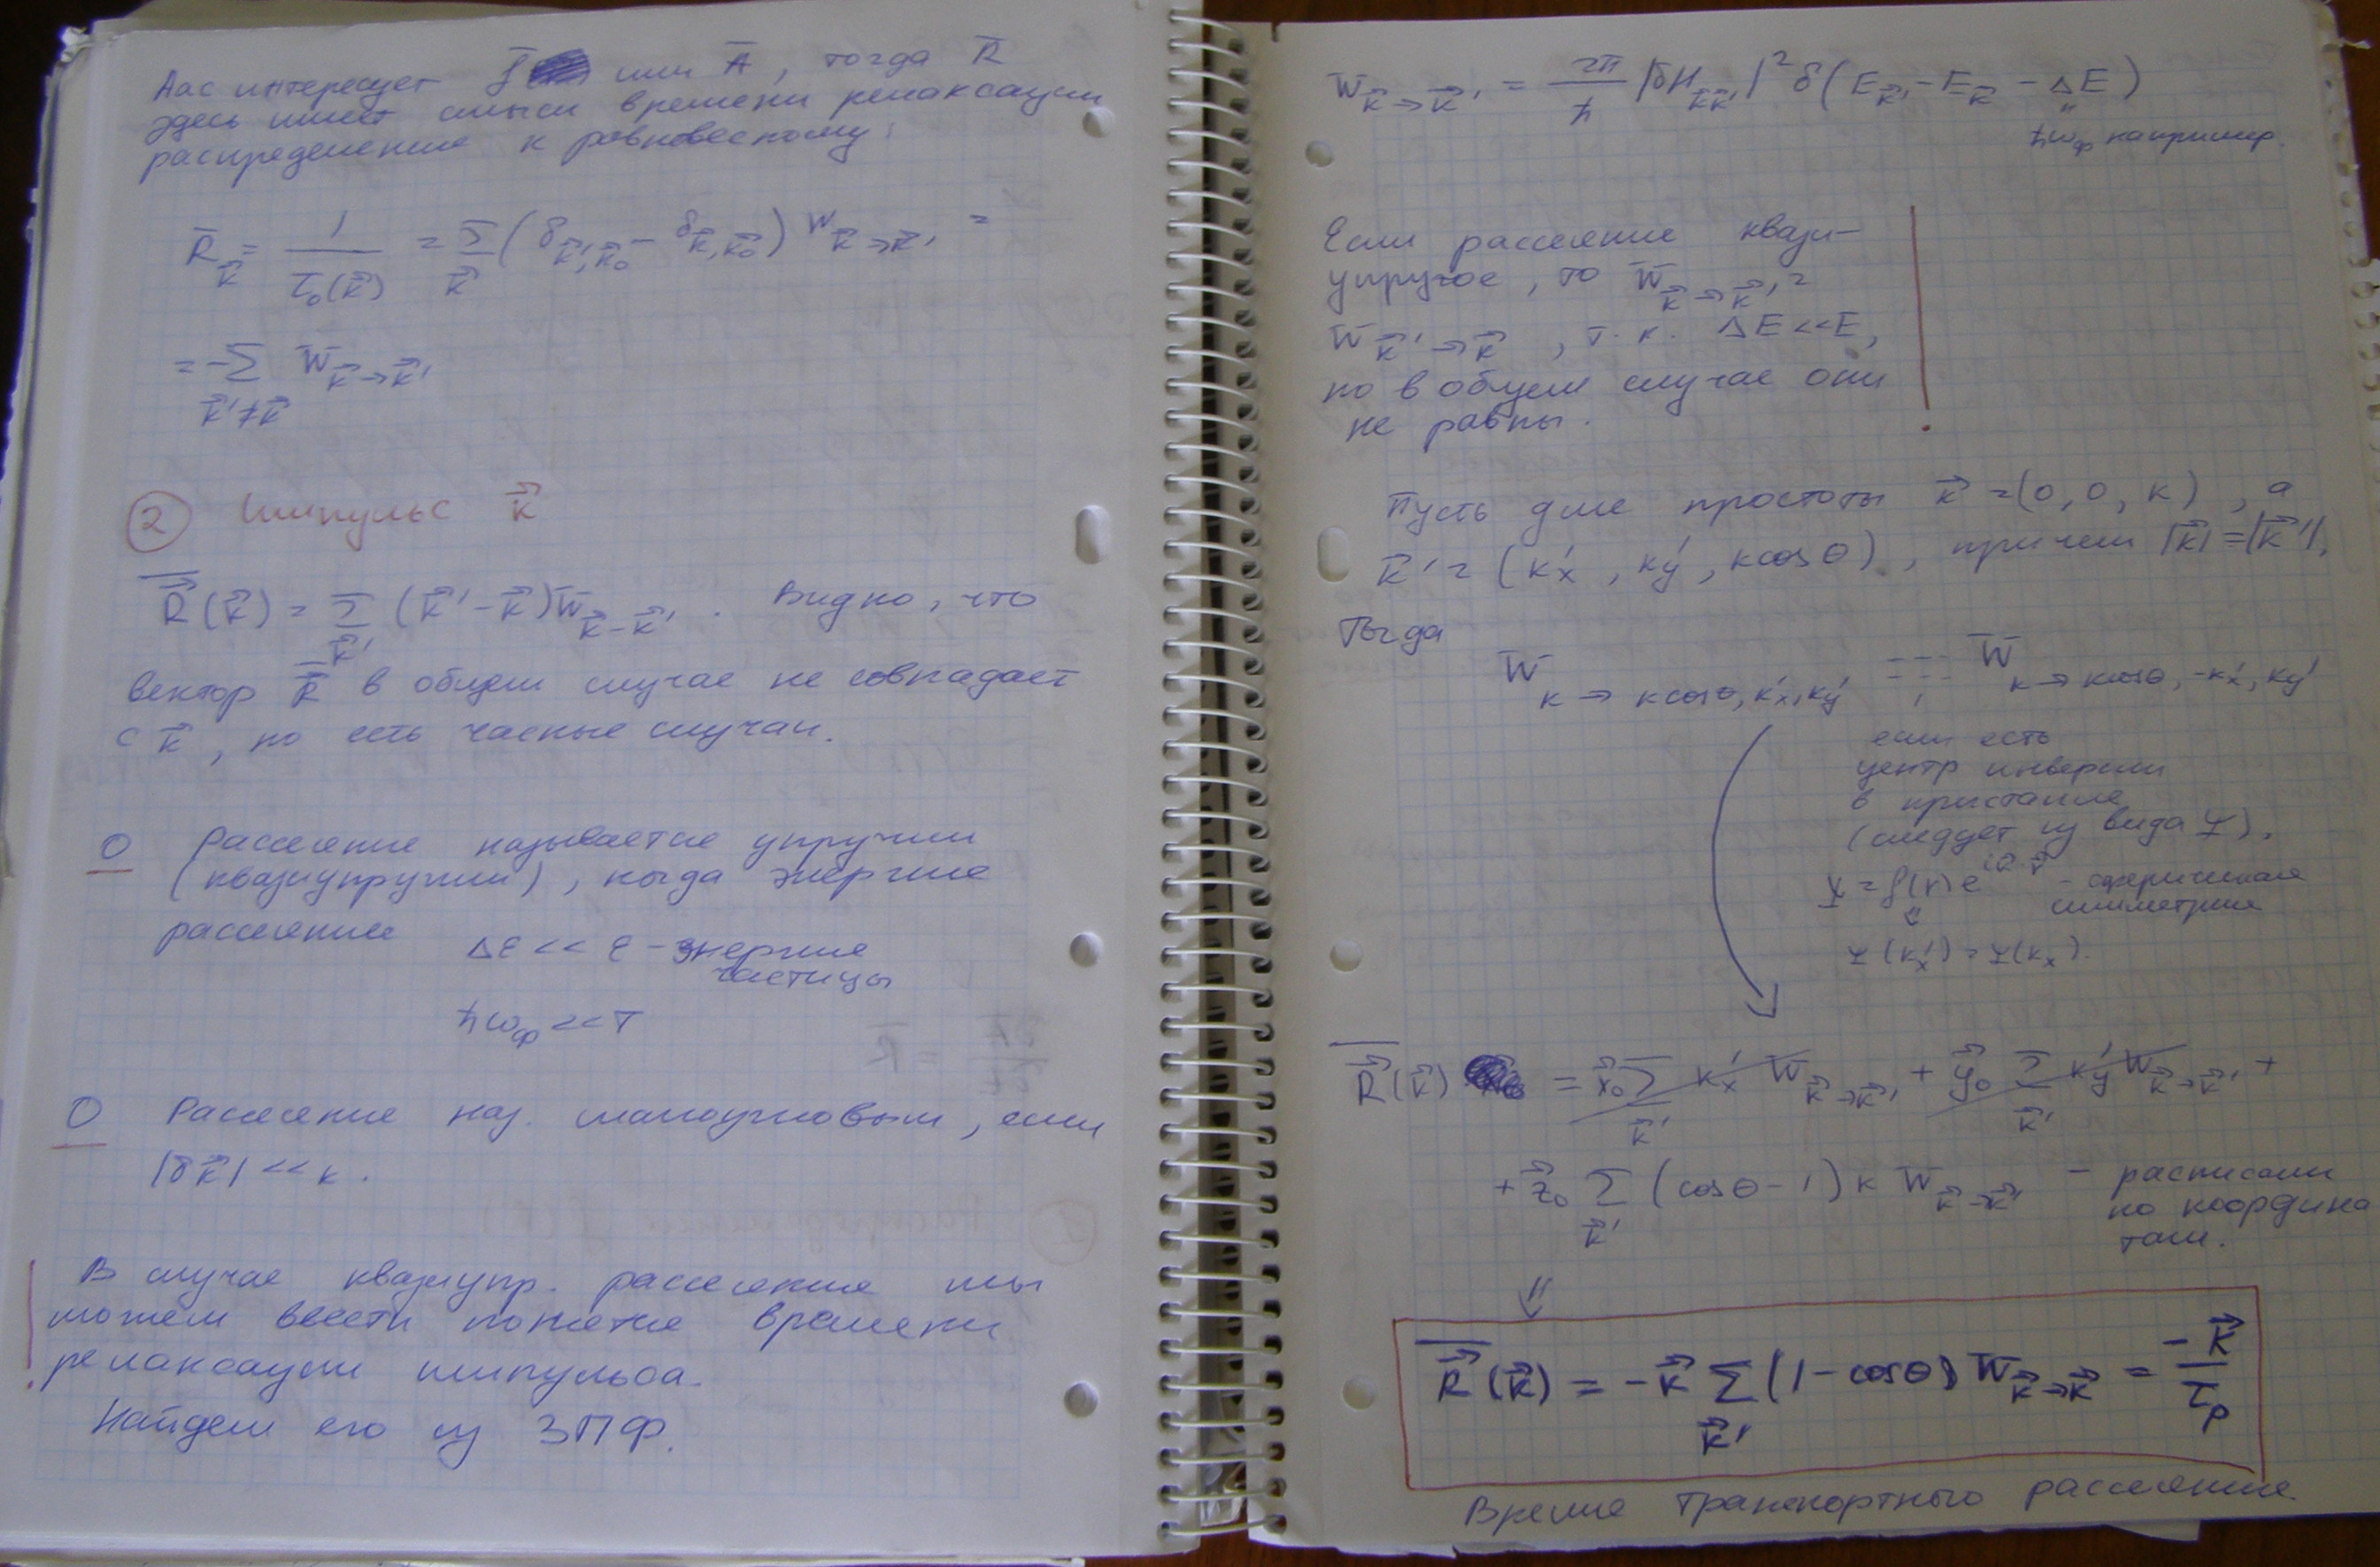 Нас интересует f или Ā, тогда R̄
здесь имеет смысл времени релаксации
распределения к равновесному:
R̄_k⃗ = 1/τ₀(k⃗) = Σ_k⃗' (δ_k⃗',k⃗₀ − δ_k⃗,k⃗₀) W_k⃗→k⃗' =
= −Σ_k⃗'≠k⃗ W_k⃗→k⃗'
② Импульс k⃗
R⃗(k⃗) = Σ_k⃗' (k⃗' − k⃗) W_k⃗−k⃗' . Видно, что
вектор R⃗ в общем случае не совпадает
с k⃗, но есть частные случаи.
O Рассеяние называется упругим
(квазиупругим), когда энергия
рассеяния ΔE << E – энергия
частицы
ħω_ф << T
O Рассеяние наз. малоугловым, если
|δk⃗| << k.
В случае квазиупр. рассеяния мы
можем ввести понятие времени
релаксации импульса.
Найдем его из ЗПФ.
W_k⃗→k⃗' = 2π/ħ |δH_k⃗k⃗'|² δ(E_k⃗' − E_k⃗ − ΔE)
ħω_ф например.
Если рассеяние квази-
упругое, то W_k⃗→k⃗' =
W_k⃗'→k⃗ , т.к. ΔE << E,
но в общем случае они
не равны.
Пусть для простоты k⃗ = (0, 0, k), а
k⃗' = (k'x, k'y, k cos θ), причем |k⃗| = |k⃗'|.
Тогда
W_k→k cosθ, k'x, k'y = W_k→k cosθ, −k'x, k'y
если есть
центр инверсии
в кристалле
(следует из вида Ψ).
Ψ = f(r) e^{ik⃗r⃗} – сферическая
симметрия
⇓
Ψ(k'x) = Ψ(kx).
R⃗(k⃗) = x⃗₀ Σ_k⃗' k'x W_k⃗→k⃗' + y⃗₀ Σ_k⃗' k'y W_k⃗→k⃗' +
+ z⃗₀ Σ_k⃗' (cos θ − 1) k W_k⃗→k⃗' – расписали
по координа
там.
⇓
R⃗(k⃗) = −k⃗ Σ_k⃗' (1 − cos θ) W_k⃗→k⃗ = −k⃗/τ_p
Время транспортного рассеяния